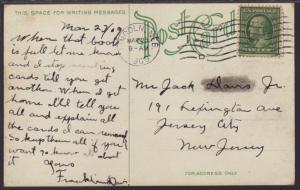 THIS SPACE FOR WRITING MESSAGES
Post Card
Mar 27/09
When that book
is full let me know
and I stop sending
cards till you get
another. When I get
home I'll tell you
all and explain all
the cards I can
So keep them all if you
want to know about
it
Yours
Mr Jack Davis Jr.
191 Lexington Ave
Jersey City
New Jersey
FOR ADDRESS ONLY